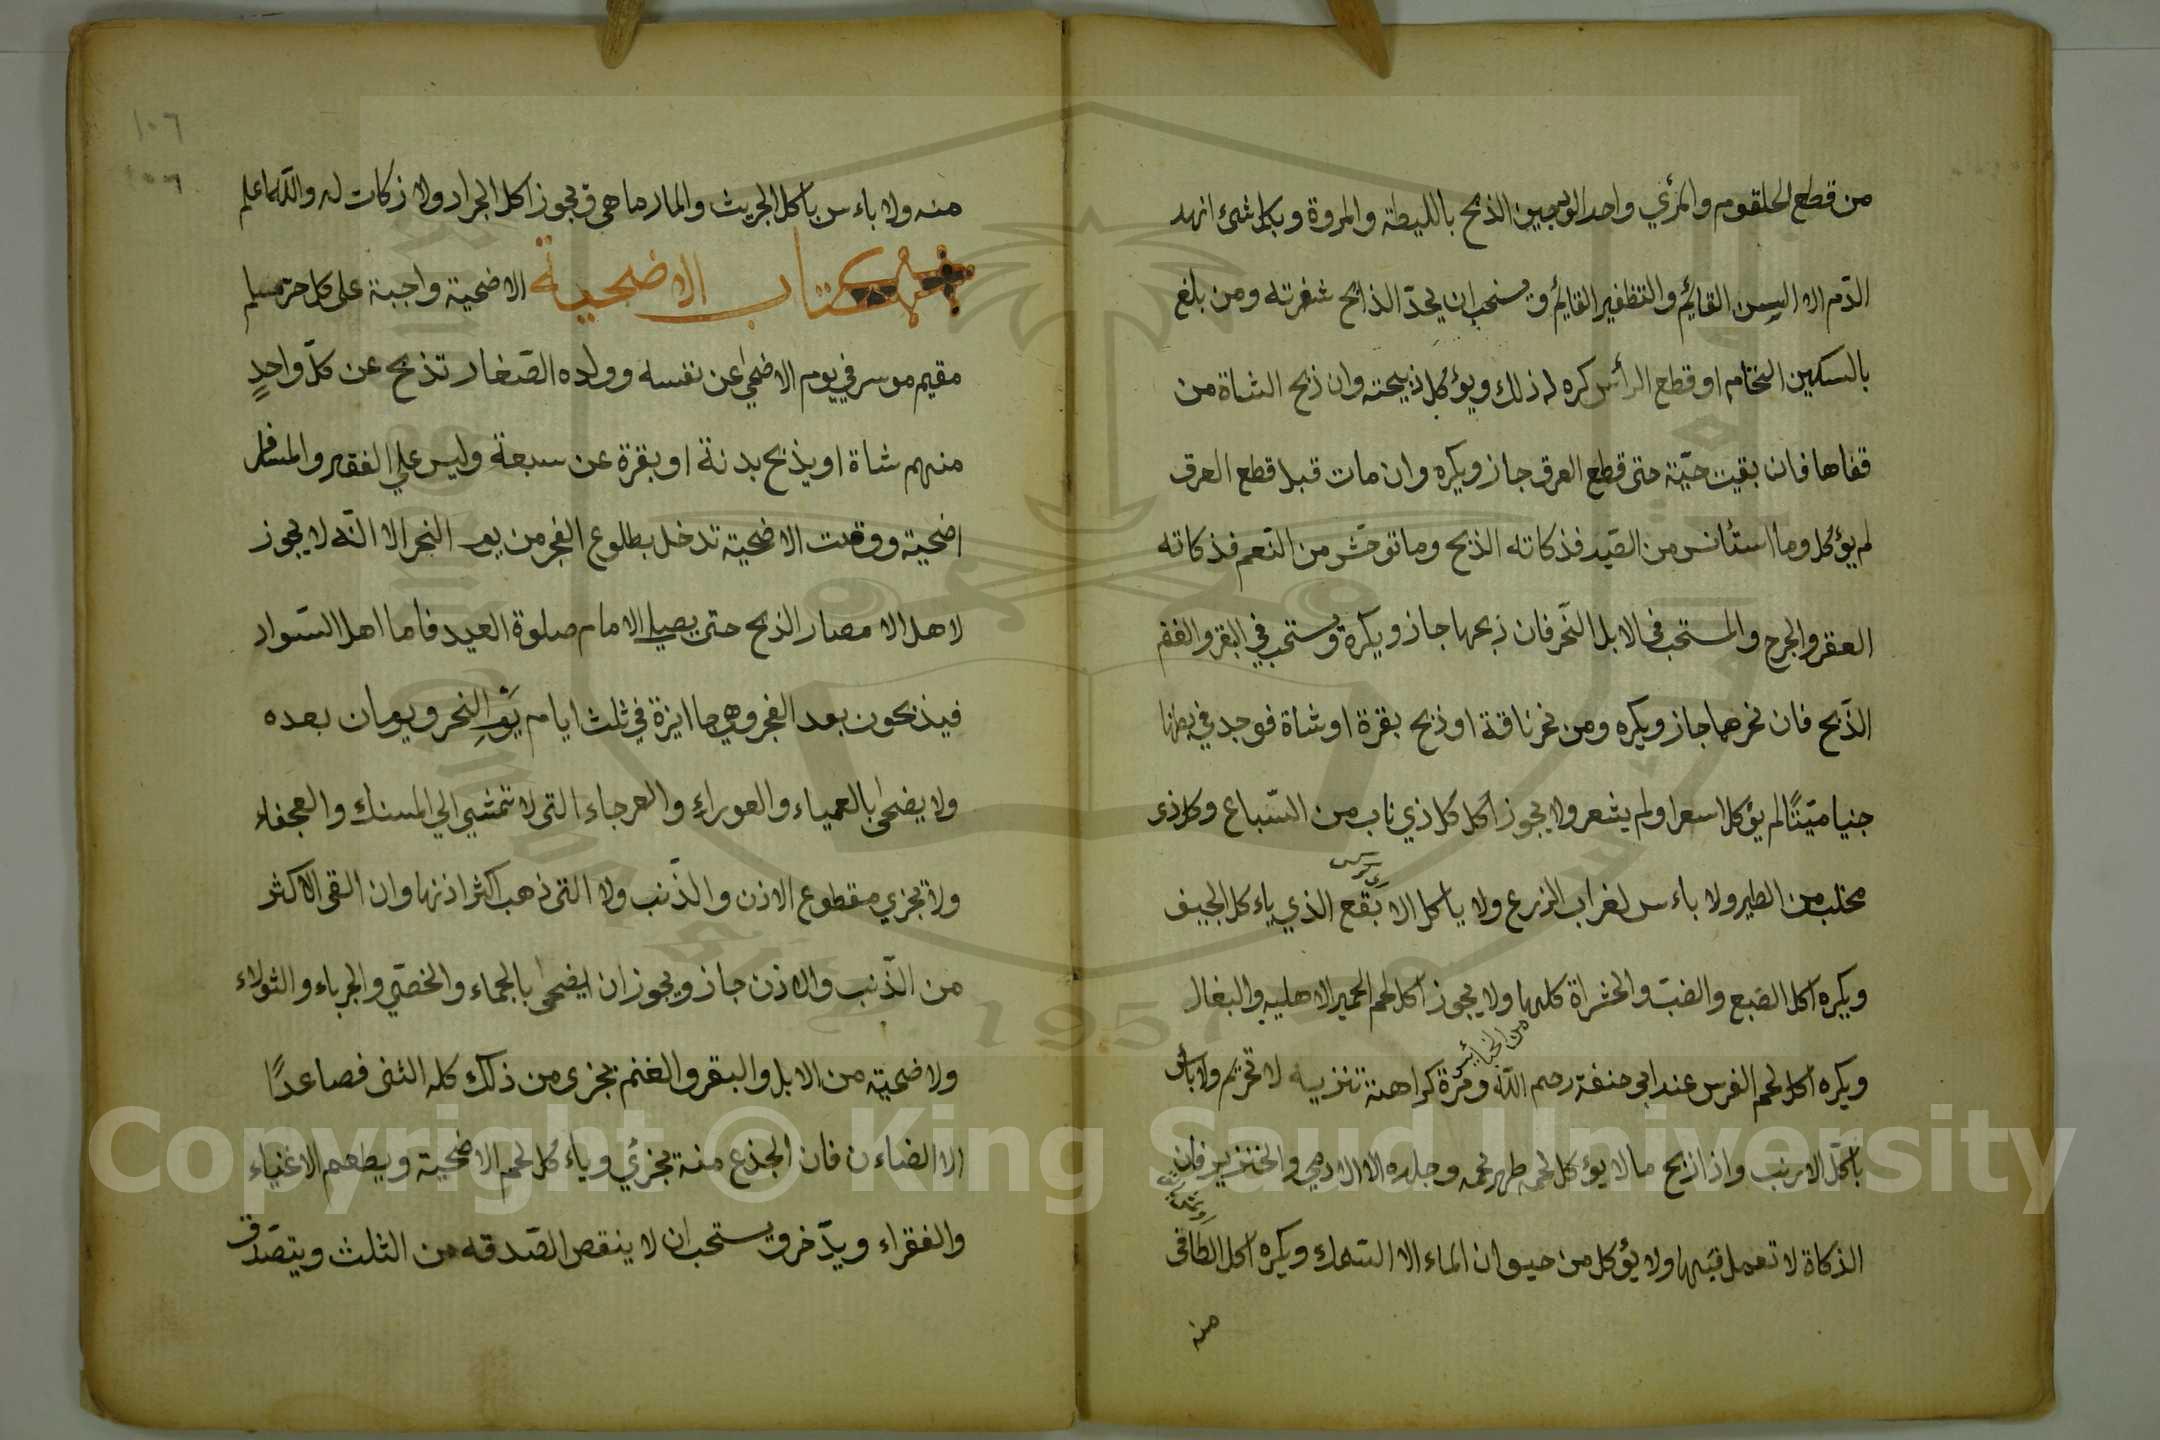 من قطع الحلقوم والمرئي واحد الودجين الذبح بالليطة والمروة وبكل شئ انهد
الدّم الا السن القائم والتظفير القائم ويستحب ان يحدّ الذابح شفرته ومن بلغ
بالسكين النخام او قطع الرأس كره له ذلك ويؤكل ذبيحته وان ذبح الشاة من
قفاها فان بقيت حيّة حتى قطع العرق جاز ويكره وان مات قبل قطع العرق
لم يؤكل وما استئانس من الصّيد فذكاته الذبح وما توحّش من النّعم فذكاته
العقر والجرح والمستحب في الابل النّحر فان ذبحها جاز ويكره ويستحب في البقر والغنم
الذّبح فان نحرهما جاز ويكره ومن نحر ناقة او ذبح بقرة او شاة فوجد في بطنها
جنيا ميّتًا لم يؤكل اسعر اولم يشعر ولا يجوز اكل كل ذي ناب من السّباع وكل ذى
مخلب من الطير ولا باءس لغراب الزرع ولا ياكل الا بقع الذي ياءكل الجيف
ويكره اكل الضبع والضبّ والحشراة كلها ولا يجوز اكل لحم الحمير الاهليه والبغال
من الخبائس
ويكره اكل لحم الفرس عند ابي حنفة رحم اللّه ومرة كراهنة تنزيه لا تحريم ولا باس
باكل الارنب واذا ذبح ما لا يؤكل لحمه طهر لحمه وجلده الا الادمي والخنزير فان
الذكاة لا تعمل فيها ولا يؤكل من حيوان الماء الا السّمك ويكره اكل الطافى
منه
١٠٦
١٠٦
منه ولا باءس باكل الجريث والمارماهى ويجوز اكل الجراد ولا زكات له واللّه اعلم
كتاب الاضحية الاضحية واجبة على كل حرّ مسلم
مقيم موسر في يوم الاضحى عن نفسه وولده الصّغار تذبح عن كلّ واحدٍ
منهم شاة او يذبح بدنة او بقرة عن سبعة وليس علي الفقير والمسافر
اضحية ووقت الاضحية تدخل بطلوع الفجر من يوم النحر الا انّه لا يجوز
لاهل الامصار الذبح حتى يصلي الامام صلوة العيد فاما اهل السّواد
فيذبحون بعد الفجر وهي جاايزة في ثلث ايام يَوْمِ النحر ويومان بعده
ولا يضحى بالعمياء والعوراء والعرجاء التى لا تمشي الي المنسك والعجفاء
ولا تجزي مقطوع الاذن والذّنب ولا التى ذهب اكثر اذنها وان القى الاكثر
من الذّنب والاذن جاز ويجوز ان يضحى بالجماء والخصّي والجرباء والثولاء
ولا ضحيّة من الابل والبقر والغنم يجزى من ذلك كله الثنى فصاعدًا
الا الضاءن فان الجذع منه يجزئي وياءكل لحم الاضحية ويطعم الاغنياء
والفقراء ويدّخر ويستحب ان لا ينقص الصّدقه من الثلث ويتصّدق
Copyright © King Saud University
1957